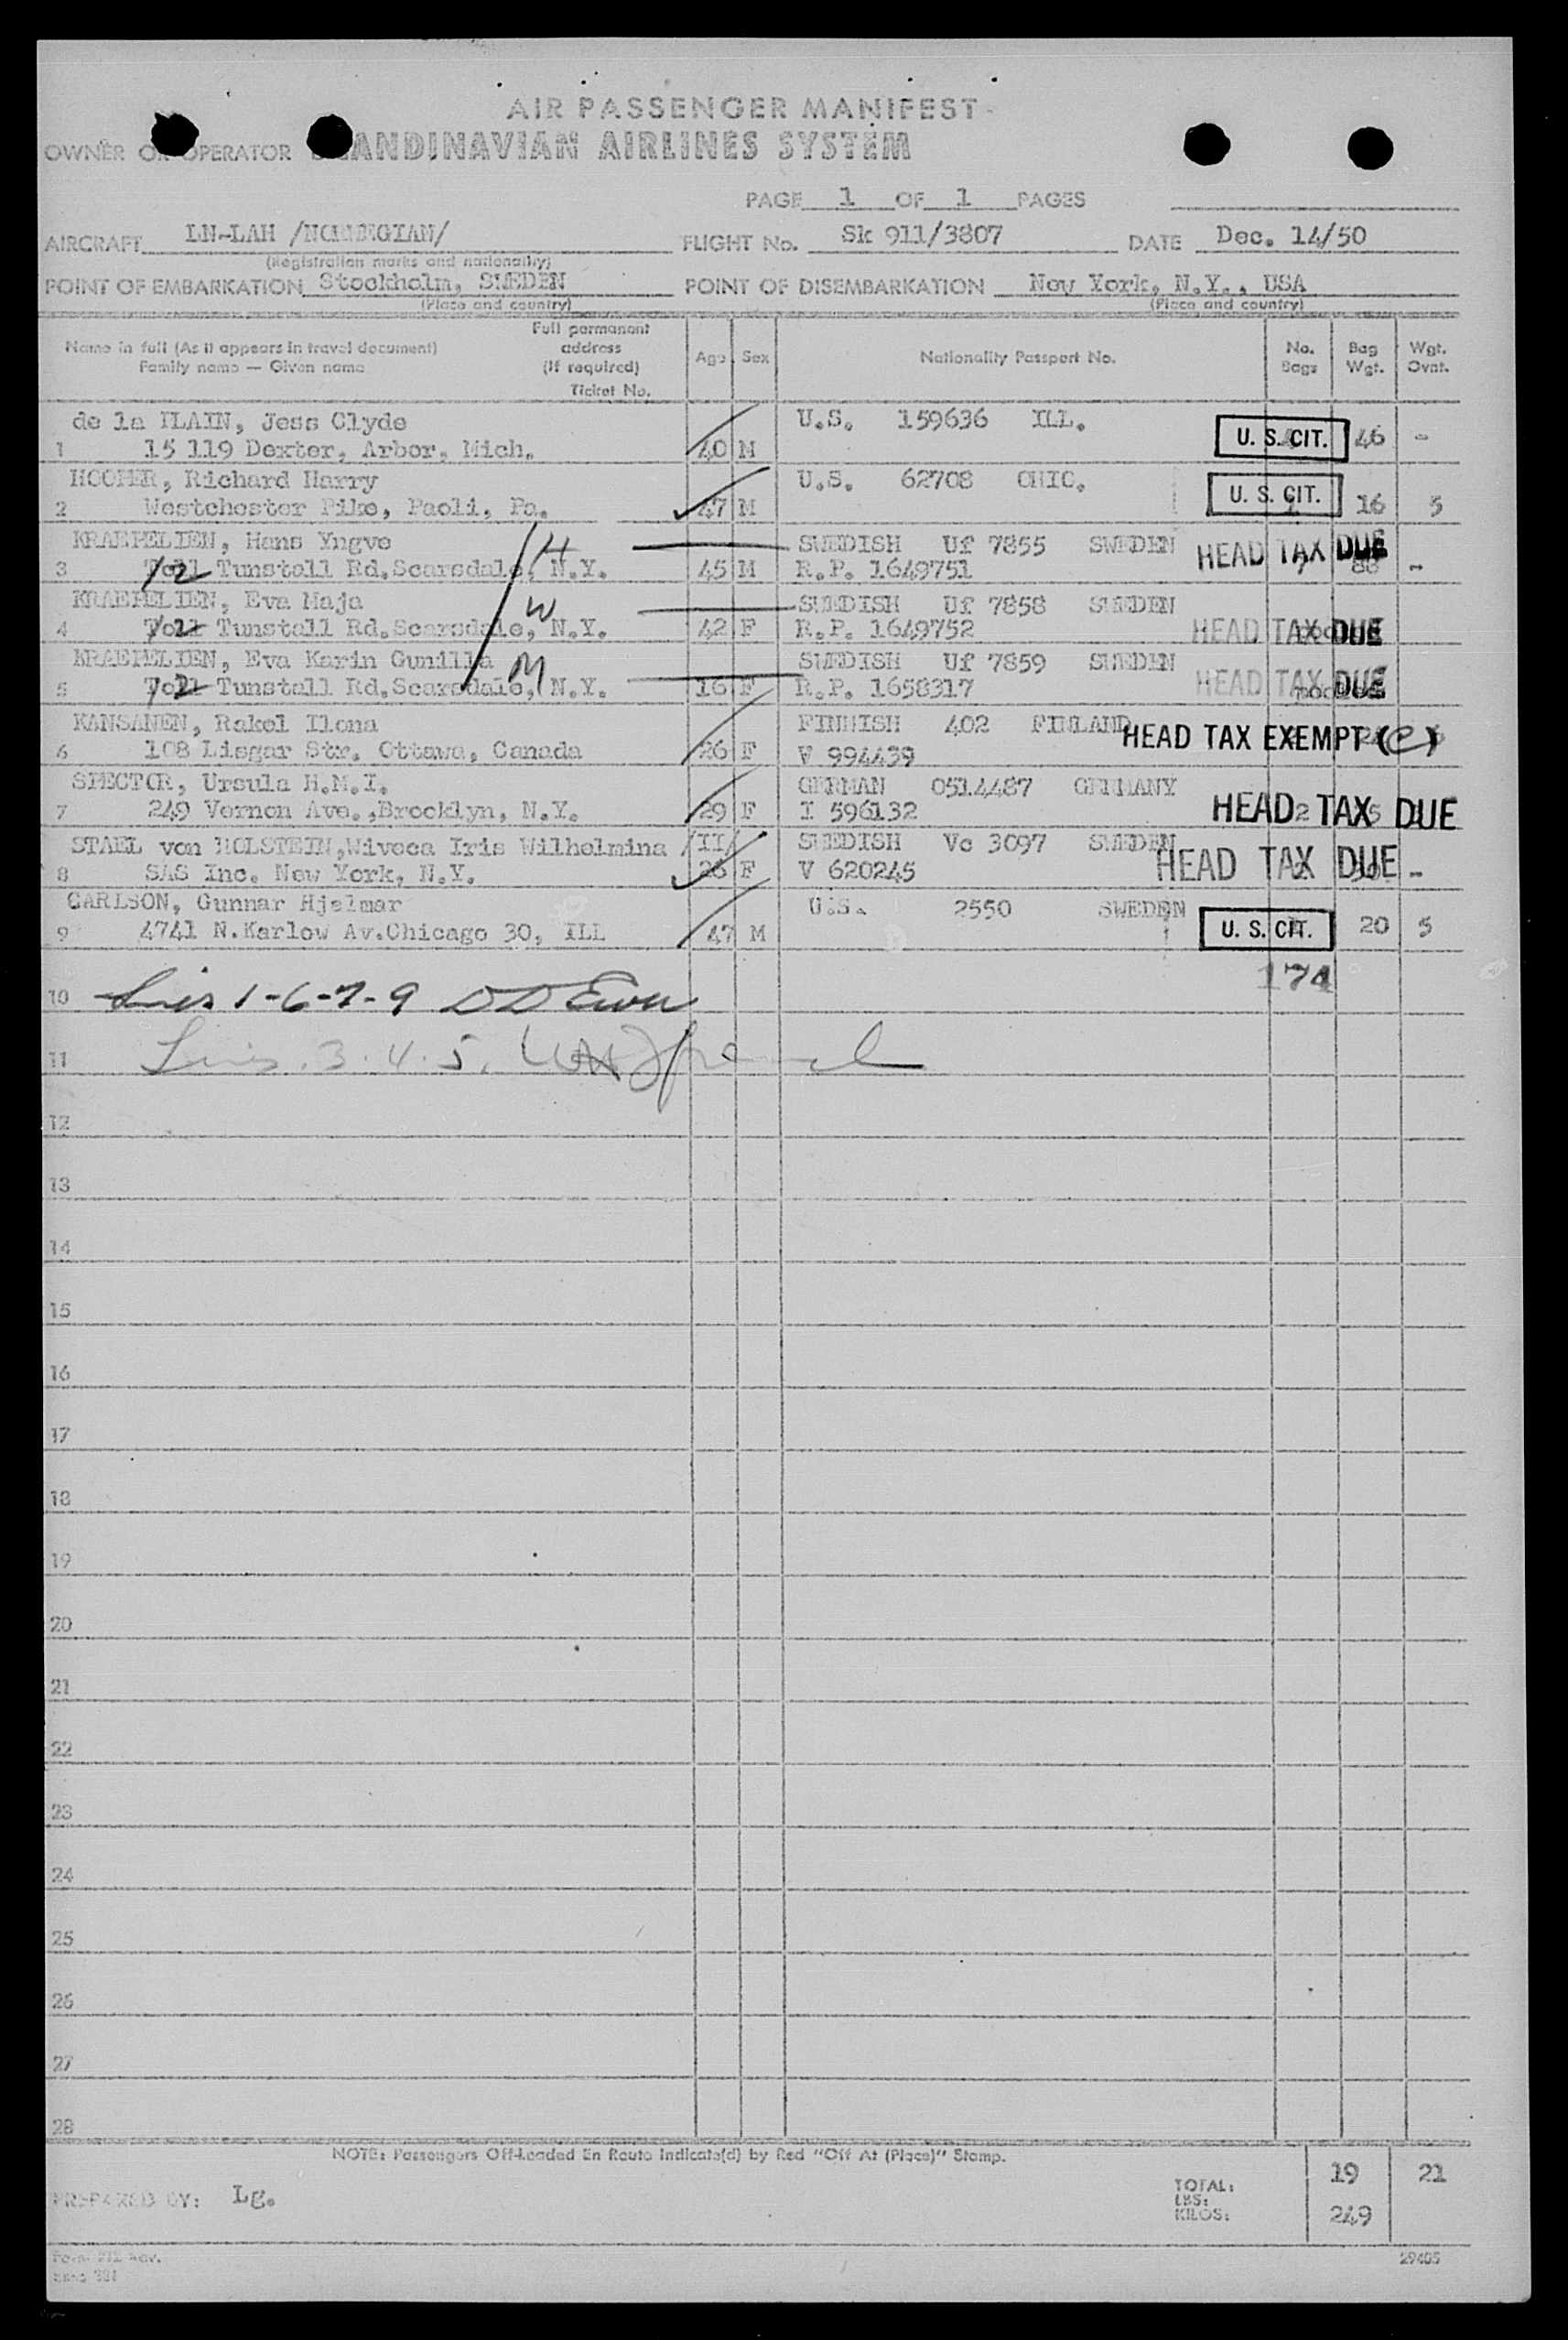 AIR PASSENGER MANIFEST
OWNER OR OPERATOR SCANDINAVIAN AIRLINES SYSTEM
PAGE 1 OF 1 PAGES
AIRCRAFT LN-LAH /NORWEGIAN/ FLIGHT No. Sk 911/3807 DATE Dec. 14/50
(Registration marks and nationality)
POINT OF EMBARKATION Stockholm, SWEDEN POINT OF DISEMBARKATION New York, N.Y., USA
(Place and country) (Place and country)
Name in full (As it appears in travel document) Family name — Given name Full permanent address (If required) Ticket No. Age Sex Nationality Passport No. No. Bags Bag Wgt. Wgt. Ovnt.
de la PLAIN, Jess Clyde U.S. 159636 ILL.
1 15 119 Dexter, Arbor, Mich. 40 M U. S. CIT. 46 -
Richard Harry U.S. 62708 OHIO.
2 Westchester Pike, Paoli, Pa. 47 M U. S. CIT. 16 5
KRAEPELIEN, Hans Yngve H SWEDISH Uf 7855 SWEDEN HEAD TAX DUE
3 12 Tunstall Rd.Scarsdale, N.Y. 45 M R.P. 1649751 -
KRAEPELIEN, Eva Maja W SWEDISH Uf 7858 SWEDEN
4 12 Tunstall Rd.Scarsdale, N.Y. 42 F R.P. 1649752 HEAD TAX DUE
KRAEPELIEN, Eva Karin Gunilla M SWEDISH Uf 7859 SWEDEN
5 12 Tunstall Rd.Scarsdale, N.Y. 16 F R.P. 1658317 HEAD TAX DUE
KANSANEN, Rakel Ilona FINNISH 402 FINLAND
6 108 Lisgar Str. Ottawa, Canada 26 F V 994439 HEAD TAX EXEMPT (e)
SPECTOR, Ursula H.M.I. GERMAN 0514487 GERMANY
7 249 Vernon Ave.,Brooklyn, N.Y. 29 F I 596132 HEAD TAX DUE
STAEL von HOLSTEIN,Wiveca Iris Wilhelmina /II/ SWEDISH Vc 3097 SWEDEN
8 SAS Inc. New York, N.Y. 26 F V 620245 HEAD TAX DUE -
CARLSON, Gunnar Hjelmar U.S. 2550 SWEDEN
9 4741 N.Karlow Av.Chicago 30, ILL 47 M U. S. CIT. 20 5
174
10 1-6-7-9
11 3.4.5.
12
13
14
15
16
17
18
19
20
21
22
23
24
25
26
27
28
NOTE: Passengers Off-Loaded En Route Indicate(d) by Red "Off At (Place)" Stamp.
TOTAL: 19 21
PREPARED BY: Lg.
LBS:
KILOS: 249
29405